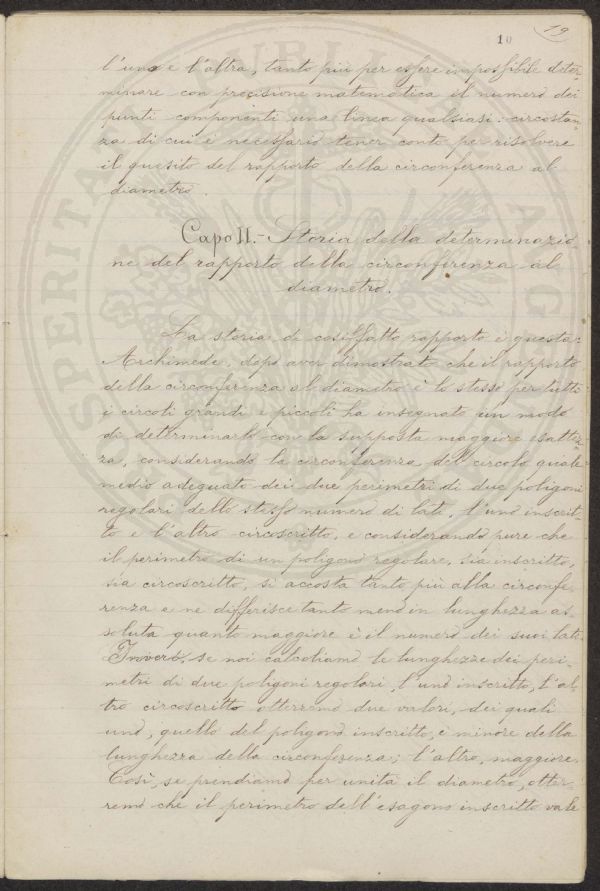 10
19
l'una e l'altra, tanto più per essere impossibile deter-
minare con precisione matematica il numero dei
punti componenti una linea qualsiasi: circostan-
za di cui è necessario tener conto per risolvere
il quesito del rapporto della circonferenza al
diametro.
Capo II.- Storia della determinazio-
ne del rapporto della circonferenza al
diametro.
La storia di cosiffatto rapporto è questa:
Archimede, dopo aver dimostrato che il rapporto
della circonferenza al diametro è lo stesso per tutti
i circoli grandi e piccoli ha insegnato un modo
di determinarlo con la supposta maggiore esattez-
za, considerando la circonferenza del circolo quale
medio adeguato dei due perimetri di due poligoni
regolari dello stesso numero di lati, l'uno inscrit-
to e l'altro circoscritto, e considerando pure che
il perimetro di un poligono regolare, sia inscritto,
sia circoscritto, si accosta tanto più alla circonfe-
renza e ne differisce tanto meno in lunghezza as-
soluta quanto maggiore è il numero dei suoi lati.
Invero, se noi calcoliamo le lunghezze dei peri-
metri di due poligoni regolari, l'uno inscritto, l'al-
tro circoscritto otterremo due valori, dei quali
uno, quello del poligono inscritto, è minore della
lunghezza della circonferenza; l'altro, maggiore.
Così, se prendiamo per unità il diametro, otter-
remo che il perimetro dell'esagono inscritto vale